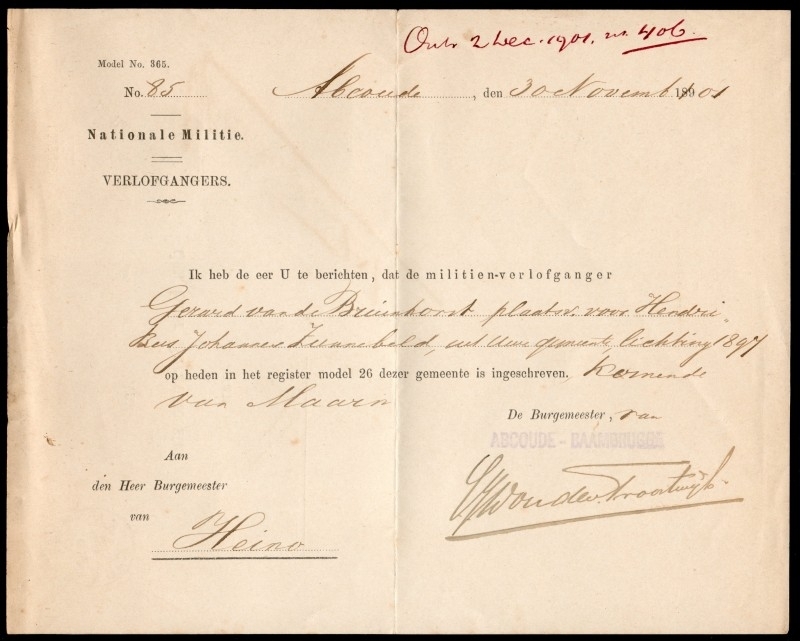 Ontv 2 Dec. 1901. no. 406.
Model No. 365.
No. 85
Abcoude, den 30 Novemb 1901
Nationale Militie.
VERLOFGANGERS.
Ik heb de eer U te berichten, dat de militien-verlofganger
Gerard van de Bruinhorst plaatsv. voor Hendri-
kus Johannes Zunnebeld, uit Uwe gemeente, lichting 1897
op heden in het register model 26 dezer gemeente is ingeschreven. komende
van Maarn
De Burgemeester, van
ABCOUDE - BAAMBRUGGE
Aan
den Heer Burgemeester
van
Heino